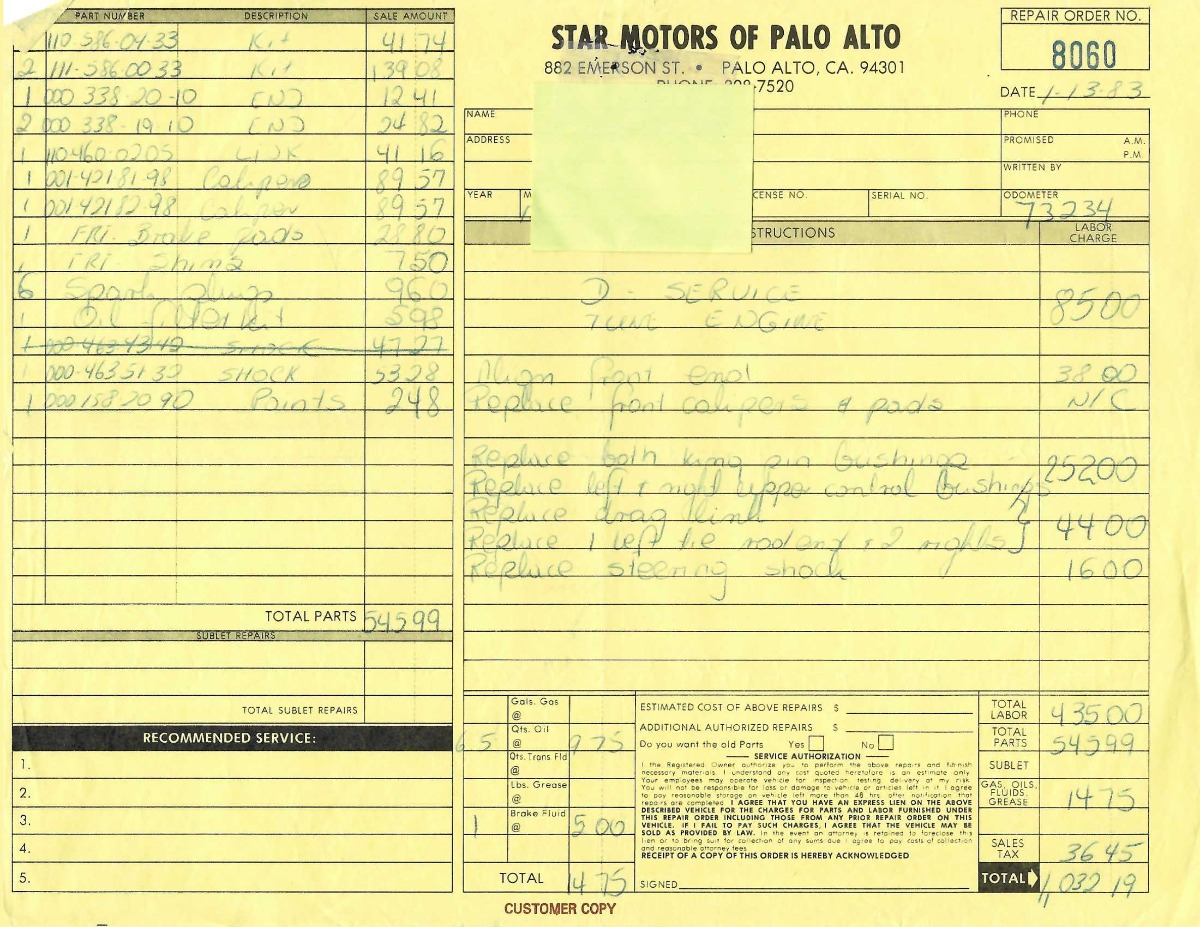 STAR MOTORS OF PALO ALTO
882 EMERSON ST. • PALO ALTO, CA. 94301
7520
REPAIR ORDER NO.
8060
DATE 1-13-83
NAME
PHONE
ADDRESS
PROMISED A.M.
P.M.
WRITTEN BY
YEAR
CENSE NO.
SERIAL NO.
ODOMETER
73234
PART NUMBER DESCRIPTION SALE AMOUNT
110 586-04-33 Kit 41 74
2 111-586 00 33 Kit 139 08
1 000 338-20-10 END 12 41
2 000 338-19-10 END 24 82
1 110-460-0205 LINK 41 16
1 001-42181-98 Calipers 89 57
1 001 42182-98 Caliper 89 57
1 FRT. Brake pads 28 80
1 FRT Shims 7 50
6 Spark plugs 9 60
1 Oil filter kit 5 98
1 000-463 43 42 SHOCK 47 27
000-463 51 32 SHOCK 53 28
1 000 158 20 90 Points 2 48
TOTAL PARTS 545 99
SUBLET REPAIRS
TOTAL SUBLET REPAIRS
RECOMMENDED SERVICE:
1.
2.
3.
4.
5.
STRUCTIONS LABOR CHARGE
D - SERVICE 85 00
TUNE ENGINE
Align front end 38 00
Replace front calipers & pads N/C
Replace both king pin bushings 252 00
Replace left & right upper control bushings
Replace drag link
Replace 1 left tie rod end & 2 rights 44 00
Replace steering shock 16 00
Gals. Gas @
6 5 Qts. Oil @ 9 75
Qts. Trans Fld @
Lbs. Grease @
1 Brake Fluid @ 5 00
TOTAL 14 75
ESTIMATED COST OF ABOVE REPAIRS $
ADDITIONAL AUTHORIZED REPAIRS $
Do you want the old Parts Yes No
SERVICE AUTHORIZATION
I the Registered Owner authorize you to perform the above repairs and furnish
necessary materials. I understand any cost quoted heretofore is an estimate only.
Your employees may operate vehicle for inspection, testing, delivery at my risk.
You will not be responsible for loss or damage to vehicle or articles left in it. I agree
to pay reasonable storage on vehicle left more than 48 hrs. after notification that
repairs are completed. I AGREE THAT YOU HAVE AN EXPRESS LIEN ON THE ABOVE
DESCRIBED VEHICLE FOR THE CHARGES FOR PARTS AND LABOR FURNISHED UNDER
THIS REPAIR ORDER INCLUDING THOSE FROM ANY PRIOR REPAIR ORDER ON THIS
VEHICLE. IF I FAIL TO PAY SUCH CHARGES, I AGREE THAT THE VEHICLE MAY BE
SOLD AS PROVIDED BY LAW. In the event an attorney is retained to foreclose this
lien or to bring suit for collection of any sums due I agree to pay costs of collection
and reasonable attorney fees
RECEIPT OF A COPY OF THIS ORDER IS HEREBY ACKNOWLEDGED
SIGNED
TOTAL LABOR 435 00
TOTAL PARTS 545 99
SUBLET
GAS, OILS, FLUIDS. GREASE 14 75
SALES TAX 36 45
TOTAL 1,032 19
CUSTOMER COPY